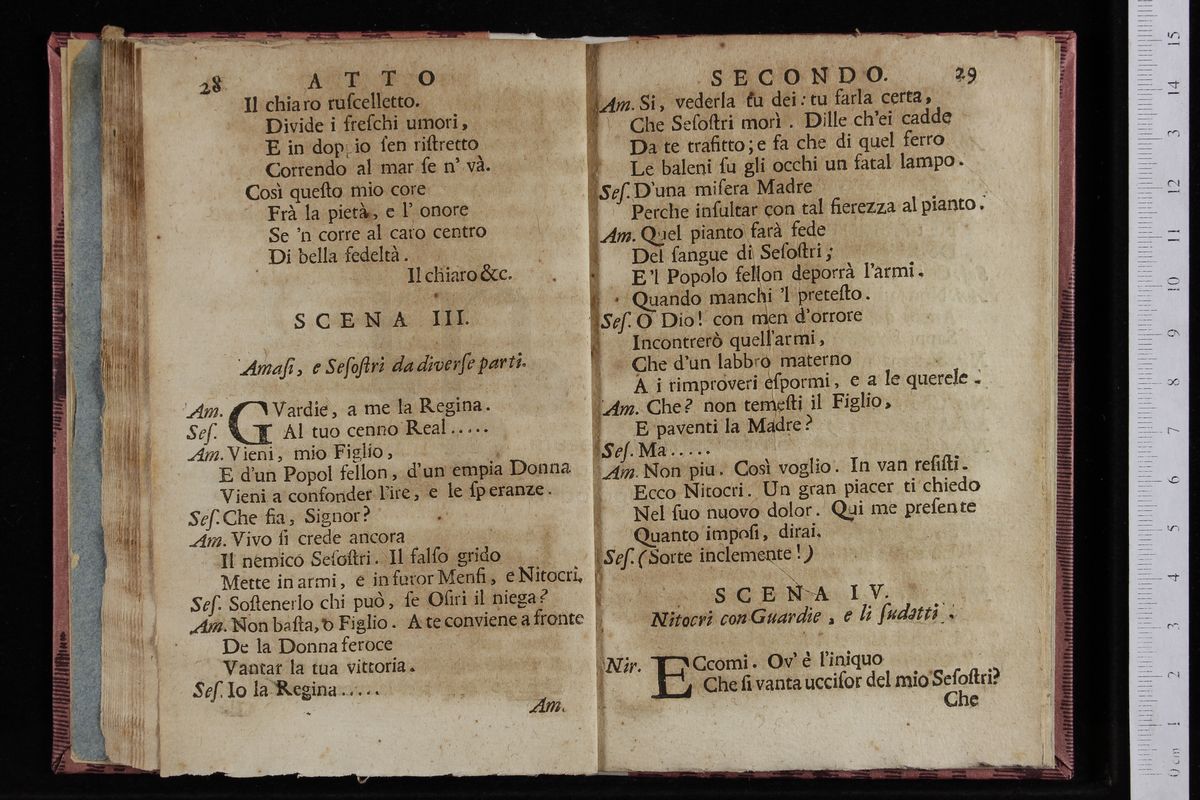 28 ATTO
Il chiaro ruſcelletto.
Divide i freſchi umori,
E in doppio ſen riſtretto
Correndo al mar ſe n' và.
Così queſto mio core
Frà la pietà, e l' onore
Se 'n corre al caro centro
Di bella fedeltà.
Il chiaro &c.
SCENA III.
Amaſi, e Seſoſtri da diverſe parti.
Am. GVardie, a me la Regina.
Seſ. Al tuo cenno Real.....
Am. Vieni, mio Figlio,
E d'un Popol fellon, d'un empia Donna
Vieni a confonder l'ire, e le ſperanze.
Seſ. Che fia, Signor?
Am. Vivo ſi crede ancora
Il nemico Seſoſtri. Il falſo grido
Mette in armi, e in furor Menfi, e Nitocri.
Seſ. Soſtenerlo chi può, ſe Oſiri il niega?
Am. Non baſta, o Figlio. A te conviene a fronte
De la Donna feroce
Vantar la tua vittoria.
Seſ. Io la Regina.....
Am.
SECONDO. 29
Am. Si, vederla tu dei: tu farla certa,
Che Seſoſtri morì. Dille ch'ei cadde
Da te trafitto; e fa che di quel ferro
Le baleni ſu gli occhi un fatal lampo.
Seſ. D'una miſera Madre
Perche inſultar con tal fierezza al pianto.
Am. Quel pianto farà fede
Del ſangue di Seſoſtri;
E'l Popolo fellon deporrà l'armi.
Quando manchi 'l preteſto.
Seſ. O Dio! con men d'orrore
Incontrerò quell'armi,
Che d'un labbro materno
A i rimproveri eſpormi, e a le querele.
Am. Che? non temeſti il Figlio,
E paventi la Madre?
Seſ. Ma.....
Am. Non piu. Così voglio. In van reſiſti.
Ecco Nitocri. Un gran piacer ti chiedo
Nel ſuo nuovo dolor. Qui me preſente
Quanto impoſi, dirai.
Seſ. (Sorte inclemente!)
SCENA IV.
Nitocri con Guardie, e li ſudatti.
Nir. ECcomi. Ov' è l'iniquo
Che ſi vanta ucciſor del mio Seſoſtri?
Che
15
14
13
12
11
10
9
8
7
6
5
4
3
2
1
0 cm